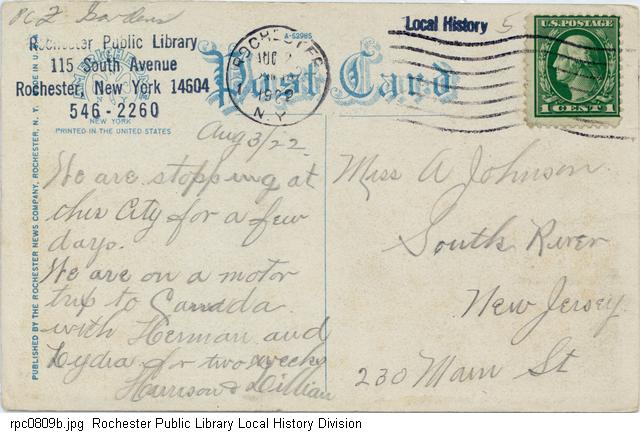 PC2 Gardens
Rochester Public Library
115 South Avenue
Rochester, New York 14604
546-2260
NEW YORK
PRINTED IN THE UNITED STATES
A-52985
Post Card
ROCHESTER
N.Y.
Local History
5
U.S. POSTAGE
1 CENT 1
MADE IN U.S.A.
PUBLISHED BY THE ROCHESTER NEWS COMPANY, ROCHESTER, N. Y.
Aug 3/22
We are stopping at
this City for a few
days.
We are on a motor
trip to Canada
with Herman and
Lydia for two weeks
Harrison & Lillian
Miss A Johnson
South River
New Jersey
230 Main St
rpc0809b.jpg Rochester Public Library Local History Division